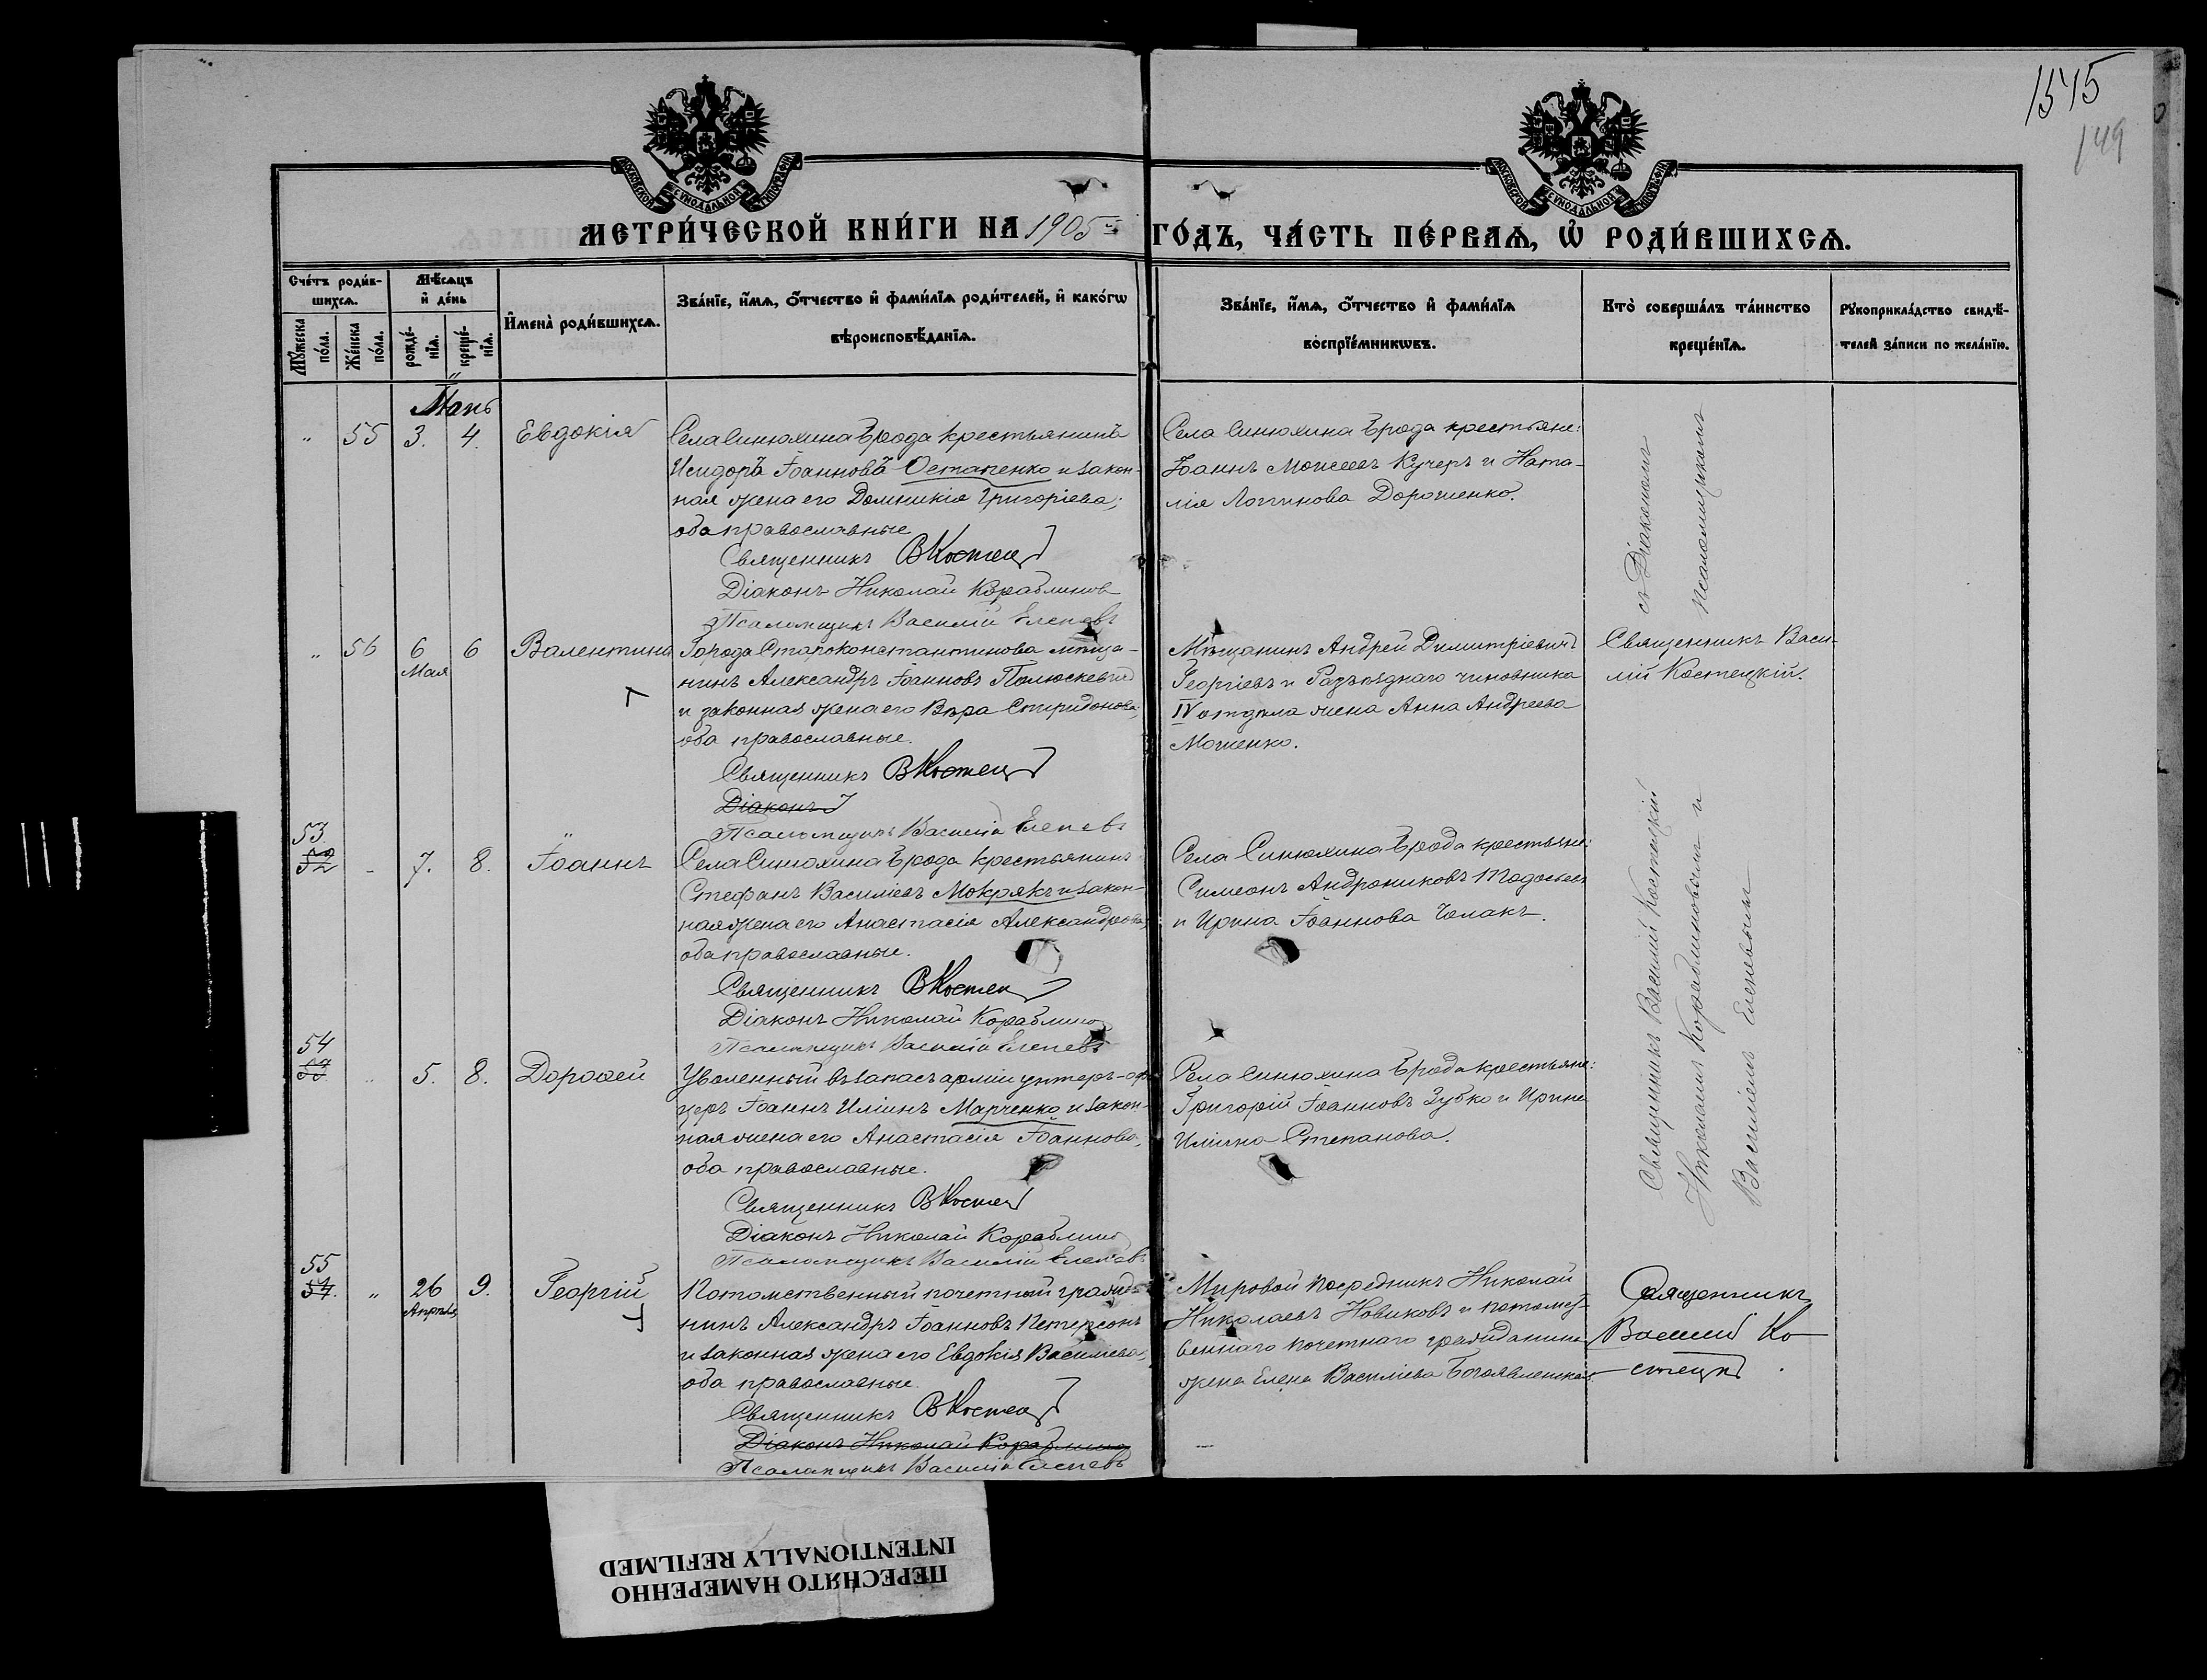 1545
149
МОСКОВСКОЙ СѴНОДАЛЬНОЙ ТИПОГРАФІИ
МОСКОВСКОЙ СѴНОДАЛЬНОЙ ТИПОГРАФІИ
МЕТРИ́ЧЕСКОЙ КНИ́ГИ НА 1905 й ГО́ДЪ, ЧА́СТЬ ПЕ́РВАѦ, Ѡ҆ РОДИ́ВШИХСѦ.
Сче́тъ роди́в-
шихсѧ.
Мꙋ́жеска по́ла.
Же́нска по́ла.
Мѣ́сѧцъ
и҆ де́нь
рожде́-
нїѧ.
креще́-
нїѧ.
И҆мена̀ роди́вшихсѧ.
Зва́нїе, и҆́мѧ, ѻ҆́тчество и҆ фами́лїѧ роди́телей, и҆ како́гѡ
вѣроисповѣ́данїѧ.
Зва́нїе, и҆́мѧ, ѻ҆́тчество и҆ фами́лїѧ
воспрїе́мникѡвъ.
Кто̀ соверша́лъ та́инство
креще́нїѧ.
Рꙋкоприкла́дство свидѣ́-
телей за́писи по жела́нїю.
Май
" 55 3. 4. Евдокія
Села Синюхина Брода крестьянинъ
Исидоръ Іоанновъ Остапенко и закон-
ная жена его Домникія Григоріева;
оба православные
Священникъ В Костец
Діаконъ Николай Кораблинов
Псаломщикъ Василій Елепевъ
Села Синюхина Брода крестьяне:
Іоаннъ Моисеевъ Кучеръ и Ната-
лія Логгинова Дорошенко.
" 56 6 Мая 6 Валентина
Города Староконстантинова мѣща-
нинъ Александръ Іоанновъ Полюскевич
и законная жена его Вѣра Спиридонова,
оба православные.
Священникъ В Костец
Діаконъ
Псаломщикъ Василій Елепевъ
Мѣщанинъ Андрей Димитріевичъ
Георгіевъ и Разъѣзднаго чиновника
IV отдѣла жена Анна Андреева
Мошенко.
Священникъ Васи-
лій Костецкій.
53
52 7. 8. Іоаннъ
Села Синюхина Брода крестьянинъ
Стефанъ Василіевъ Мокрякъ и закон-
ная жена его Анастасія Александрова,
оба православные.
Священникъ В Костец
Діаконъ Николай Кораблино
Псаломщикъ Василій Елепевъ
Села Синюхина Брода крестьяне:
Симеонъ Андрониковъ Тодосьев
и Ирина Іоаннова Чолакъ.
54
53 " 5. 8. Дорофей
Уволенный въ запасъ арміи унтеръ-оф
церъ Іоаннъ Иліинъ Марченко и закон-
ная жена его Анастасія Іоаннова,
оба православные.
Священникъ В Костец
Діаконъ Николай Кораблино
Псаломщикъ Василій Елепевъ
Села Синюхина Брода крестьяне:
Григорій Іоанновъ Зубко и Ирина
Иліина Степанова.
Священникъ Василій Костецкій съ Діакономъ
Николаемъ Кораблиновымъ и псаломщикомъ
Василіемъ Елепевымъ
55
54. " 26 Апрѣля 9. Георгій
Потомственный почетный гражда-
нинъ Александръ Іоанновъ Петерсонъ
и законная жена его Евдокія Василіева,
оба православные.
Священникъ В Костец
Діаконъ Николай Кораблино
Псаломщикъ Василій Елепевъ
Мировой посредникъ Николай
Николаевъ Новиковъ и потомст-
веннаго почетнаго гражданина
жена Елена Василіева Богоявленская
Священникъ
Василій Ко-
стецкі
ПЕРЕСНЯТО НАМЕРЕННО
INTENTIONALLY REFILMED